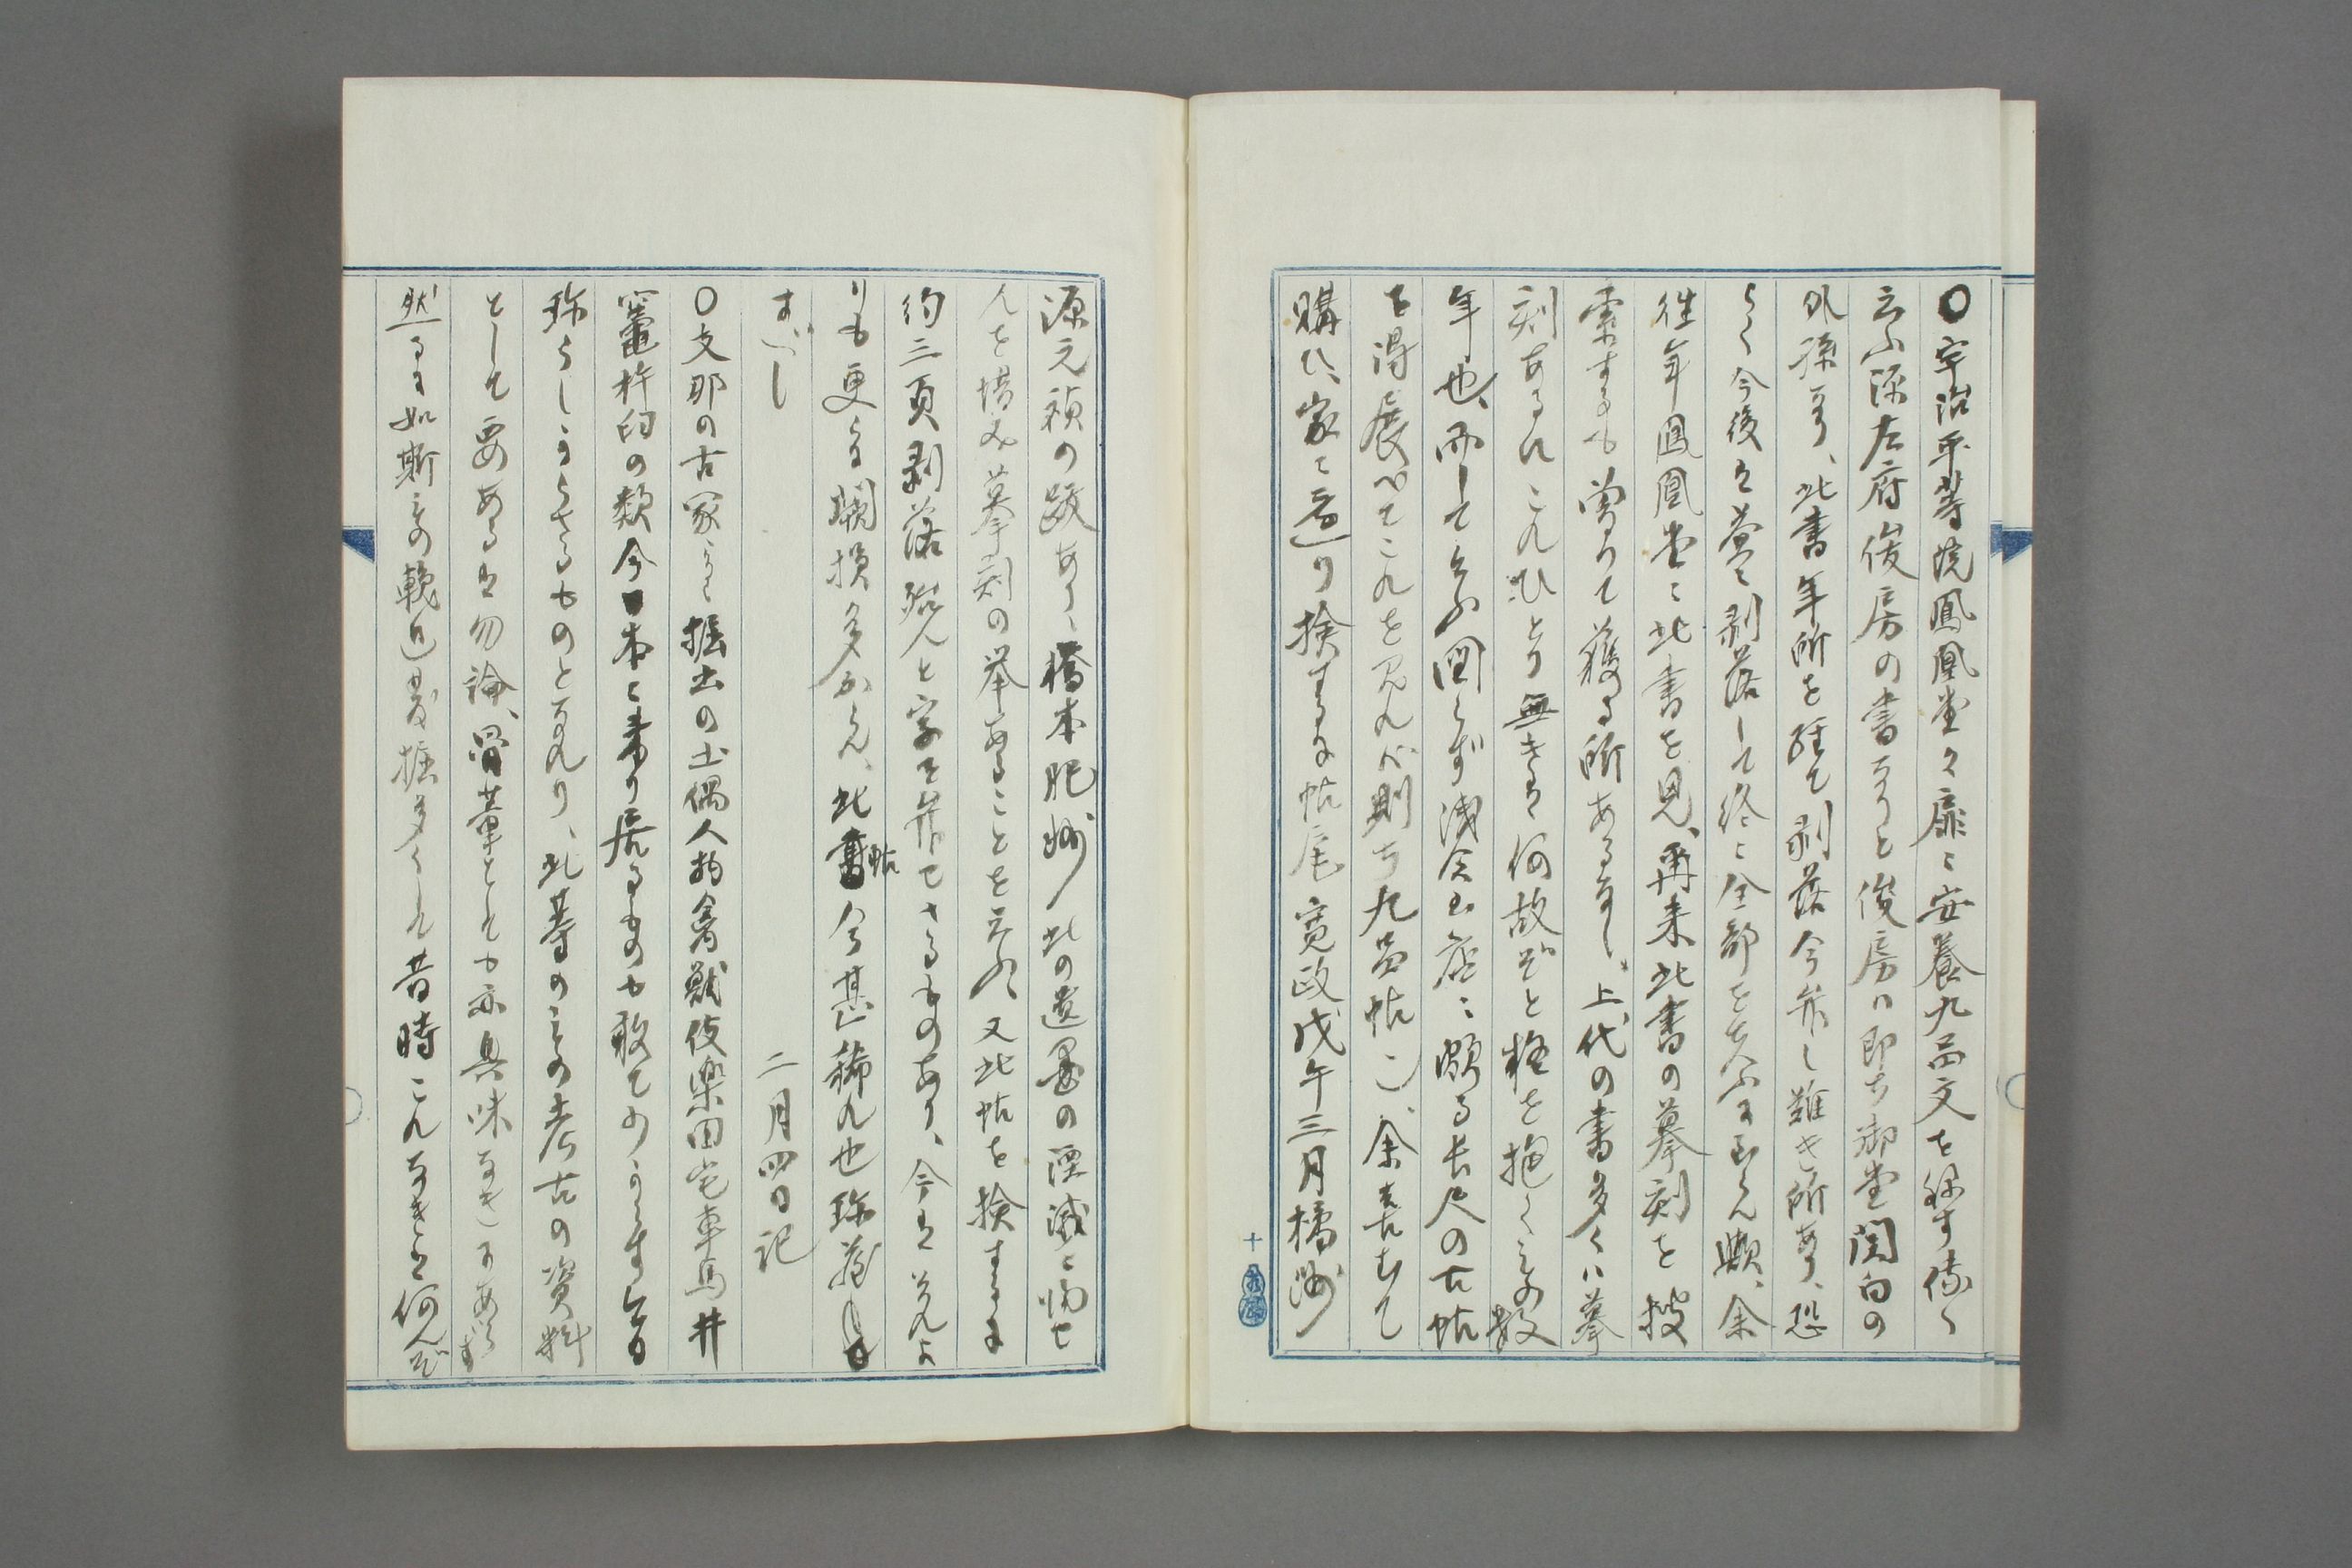 〇宇治平等院鳳凰堂々扉に安養九品文を録す傳へ
云ふ源左府俊房の書なりと俊房ハ即ち御堂関白の
外孫なり、此書年所を経て剥落今弁し難き所あり、恐
らく今後は益々剥落して終に全部を失ふに至らん歟、余
往年鳳凰堂に此書を見、再来此書の摹刻を捜
索するも曽つて獲る所あるなし、上代の書多くハ摹
刻あるにこれひとり無きは何故ぞと怪を抱くこと数
年也、而して今図らず浅倉書店に頗る長尺の古帖
を得展べてこれを見れバ則ち九品帖也、余喜むて
購ひ、家に還り検するに帖尾寛政戊午三月橘洲
源元禎の跋あり、橋本肥州此の遺墨の湮滅に帰せ
んを惜み摹刻の挙あることを云ふ、又此帖を検するに
約三頁剥落殆んと字を弁せさるものあり、今は夫れよ
りも更に闕損多からん、此帖今甚稀れ也珍蔵
すべし
二月四日記
〇支那の古冢より掘出の土偶人物禽獣伎楽田宅車馬井
竈杵臼の類今日本に来り居るもの敢て少からす皆
珍らしからさるものとなれり、此等のもの考古の資料
として要あるは勿論、骨董としても亦興味なきにあらず
然るに如斯もの輓近発掘多くして昔時これなきは何んぞ
十